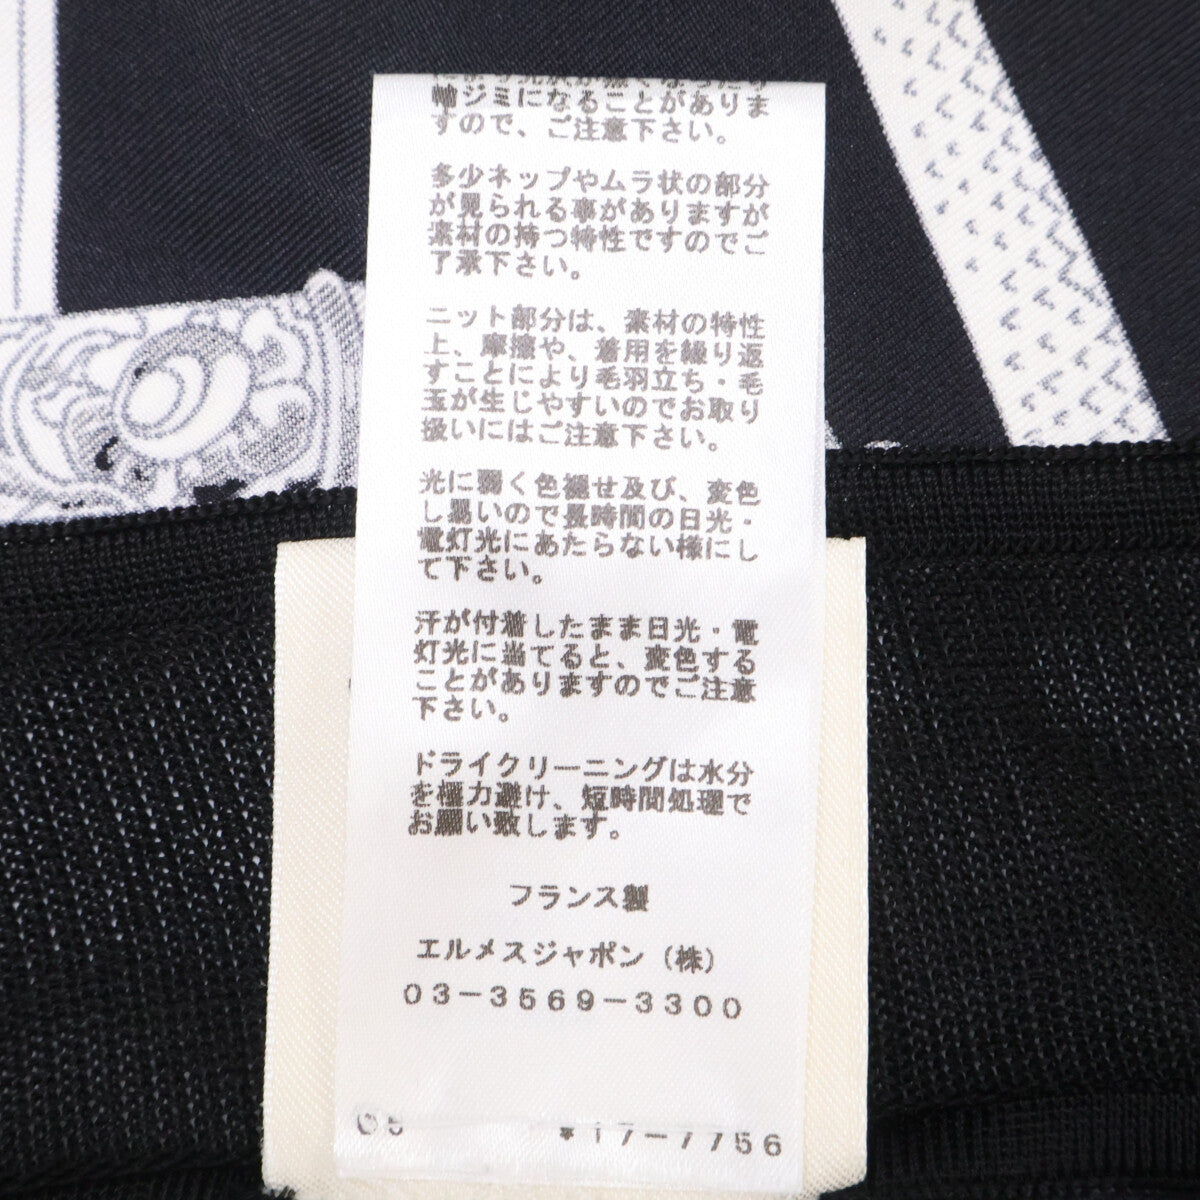 輪ジミになることがありま
すので、ご注意下さい。
多少ネップやムラ状の部分
が見られる事がありますが
素材の持つ特性ですのでご
了承下さい。
ニット部分は、素材の特性
上、摩擦や、着用を繰り返
すことにより毛羽立ち・毛
玉が生じやすいのでお取り
扱いにはご注意下さい。
光に弱く色褪せ及び、変色
し易いので長時間の日光・
電灯光にあたらない様にし
て下さい。
汗が付着したまま日光・電
灯光に当てると、変色する
ことがありますのでご注意
下さい。
ドライクリーニングは水分
を極力避け、短時間処理で
お願い致します。
フランス製
エルメスジャポン（株）
03-3569-3300
17-7756